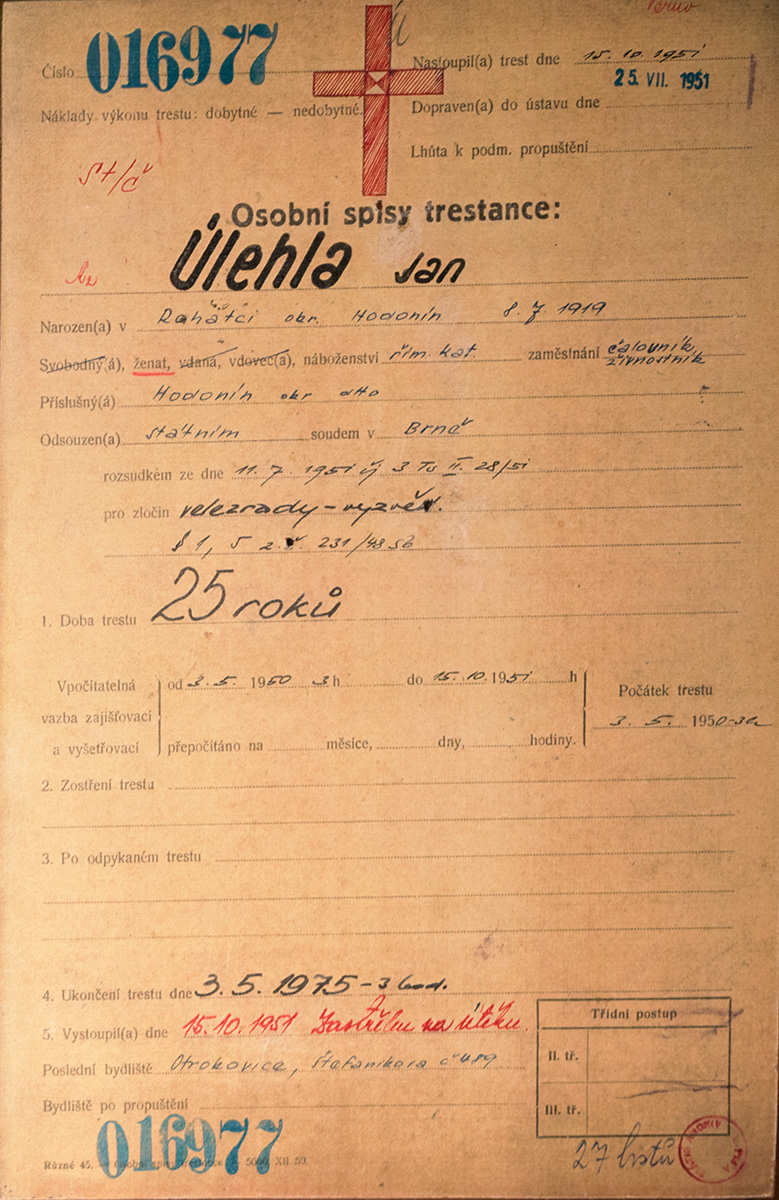 Brno
Číslo 016977
Nastoupil(a) trest dne 15. 10. 1951
25. VII. 1951
Náklady výkonu trestu: dobytné — nedobytné.
Dopraven(a) do ústavu dne
Lhůta k podm. propuštění
St/č
Osobní spisy trestance:
Úlehla Jan
Narozen(a) v Rohatci okr. Hodonín 8. 7. 1919
Svobodný(á), ženat, vdaná, vdovec(a), náboženství řím. kat. zaměstnání čalouník,
živnostník
Příslušný(á) Hodonín okr dtto
Odsouzen(a) státním soudem v Brně
rozsudkem ze dne 11. 7. 1951 čj 3 Ts II. 28/51
pro zločin velezrady – vyzvěd.
§ 1, 5 z.č. 231/48 Sb
1. Doba trestu 25 roků
Vpočítatelná
vazba zajišťovací
a vyšetřovací
od 3. 5. 1950 3 h do 15. 10. 1951 h
přepočítáno na měsíce, dny, hodiny.
Počátek trestu
3. 5. 1950
2. Zostření trestu
3. Po odpykaném trestu
4. Ukončení trestu dne 3. 5. 1975 – 3 hod.
5. Vystoupil(a) dne 15. 10. 1951 Zastřelen na útěku.
Poslední bydliště Otrokovice, Štefanikova č 489
Bydliště po propuštění
Třídní postup
II. tř.
III. tř.
016977
Různé 45. — Osobní spis trestance 5000 XII. 50.
27 listů